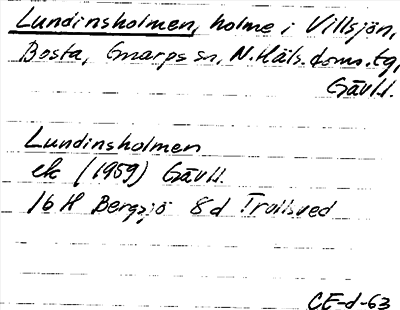 Lundinsholmen, holme i Villsjön,
Bosta, Gnarps sn, N. Häls. doms.tg,
Gävl.l.
Lundinsholmen
ek (1959) Gävl.l.
16 H Bergsjö 8d Trollsved
CE-d-63